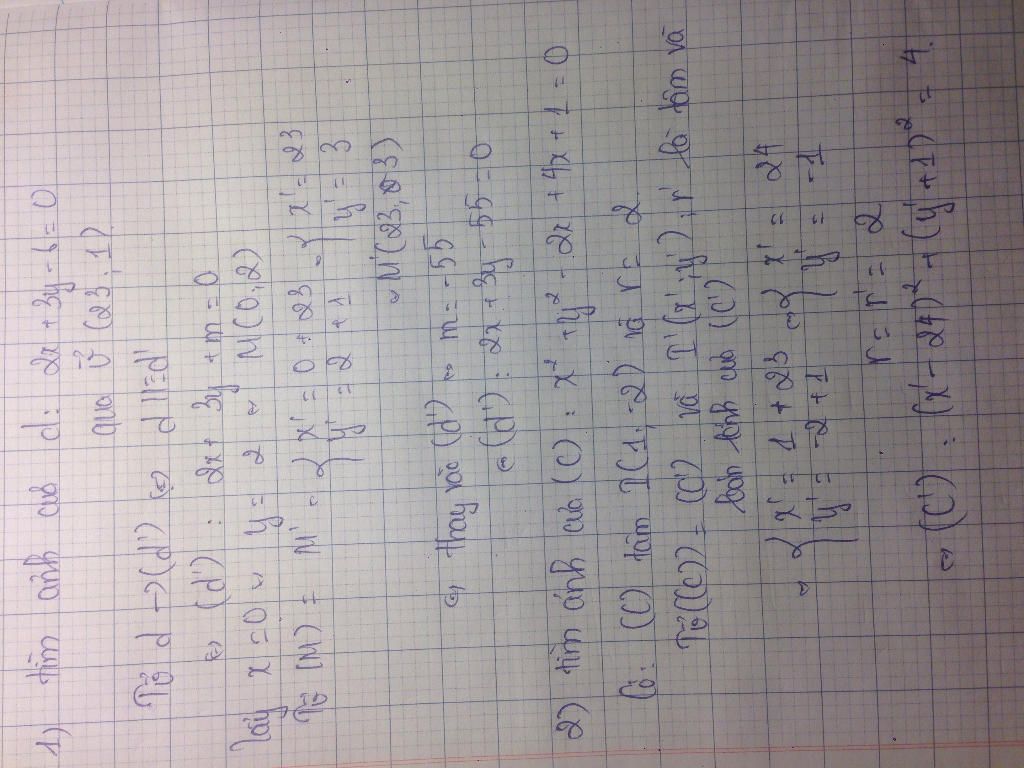 1) tìm ảnh của d: 2x + 3y - 6 = 0
qua v⃗ (23; 1)
Tv⃗ d → (d') ⇔ d // ≡ d'
⇔ (d') : 2x + 3y + m = 0
Lấy x = 0 ⇒ y = 2 ⇒ M(0; 2)
Tv⃗ (M) = M' ⇒ { x' = 0 + 23 ⇒ { x' = 23
y' = 2 + 1 y' = 3
⇒ M'(23, 3)
⇔ thay vào (d') ⇒ m = -55
⇔ (d') : 2x + 3y - 55 = 0
2) tìm ảnh của (C) : x² + y² - 2x + 4x + 1 = 0
Có: (C) tâm I(1; -2) và r = 2
Tv⃗((C)) = (C') và I'(x'; y') ; r' là tâm và
bán kính của (C')
⇒ { x' = 1 + 23 ⇒ { x' = 24
y' = -2 + 1 y' = -1
r = r' = 2
⇒ (C') : (x' - 24)² + (y' + 1)² = 4.